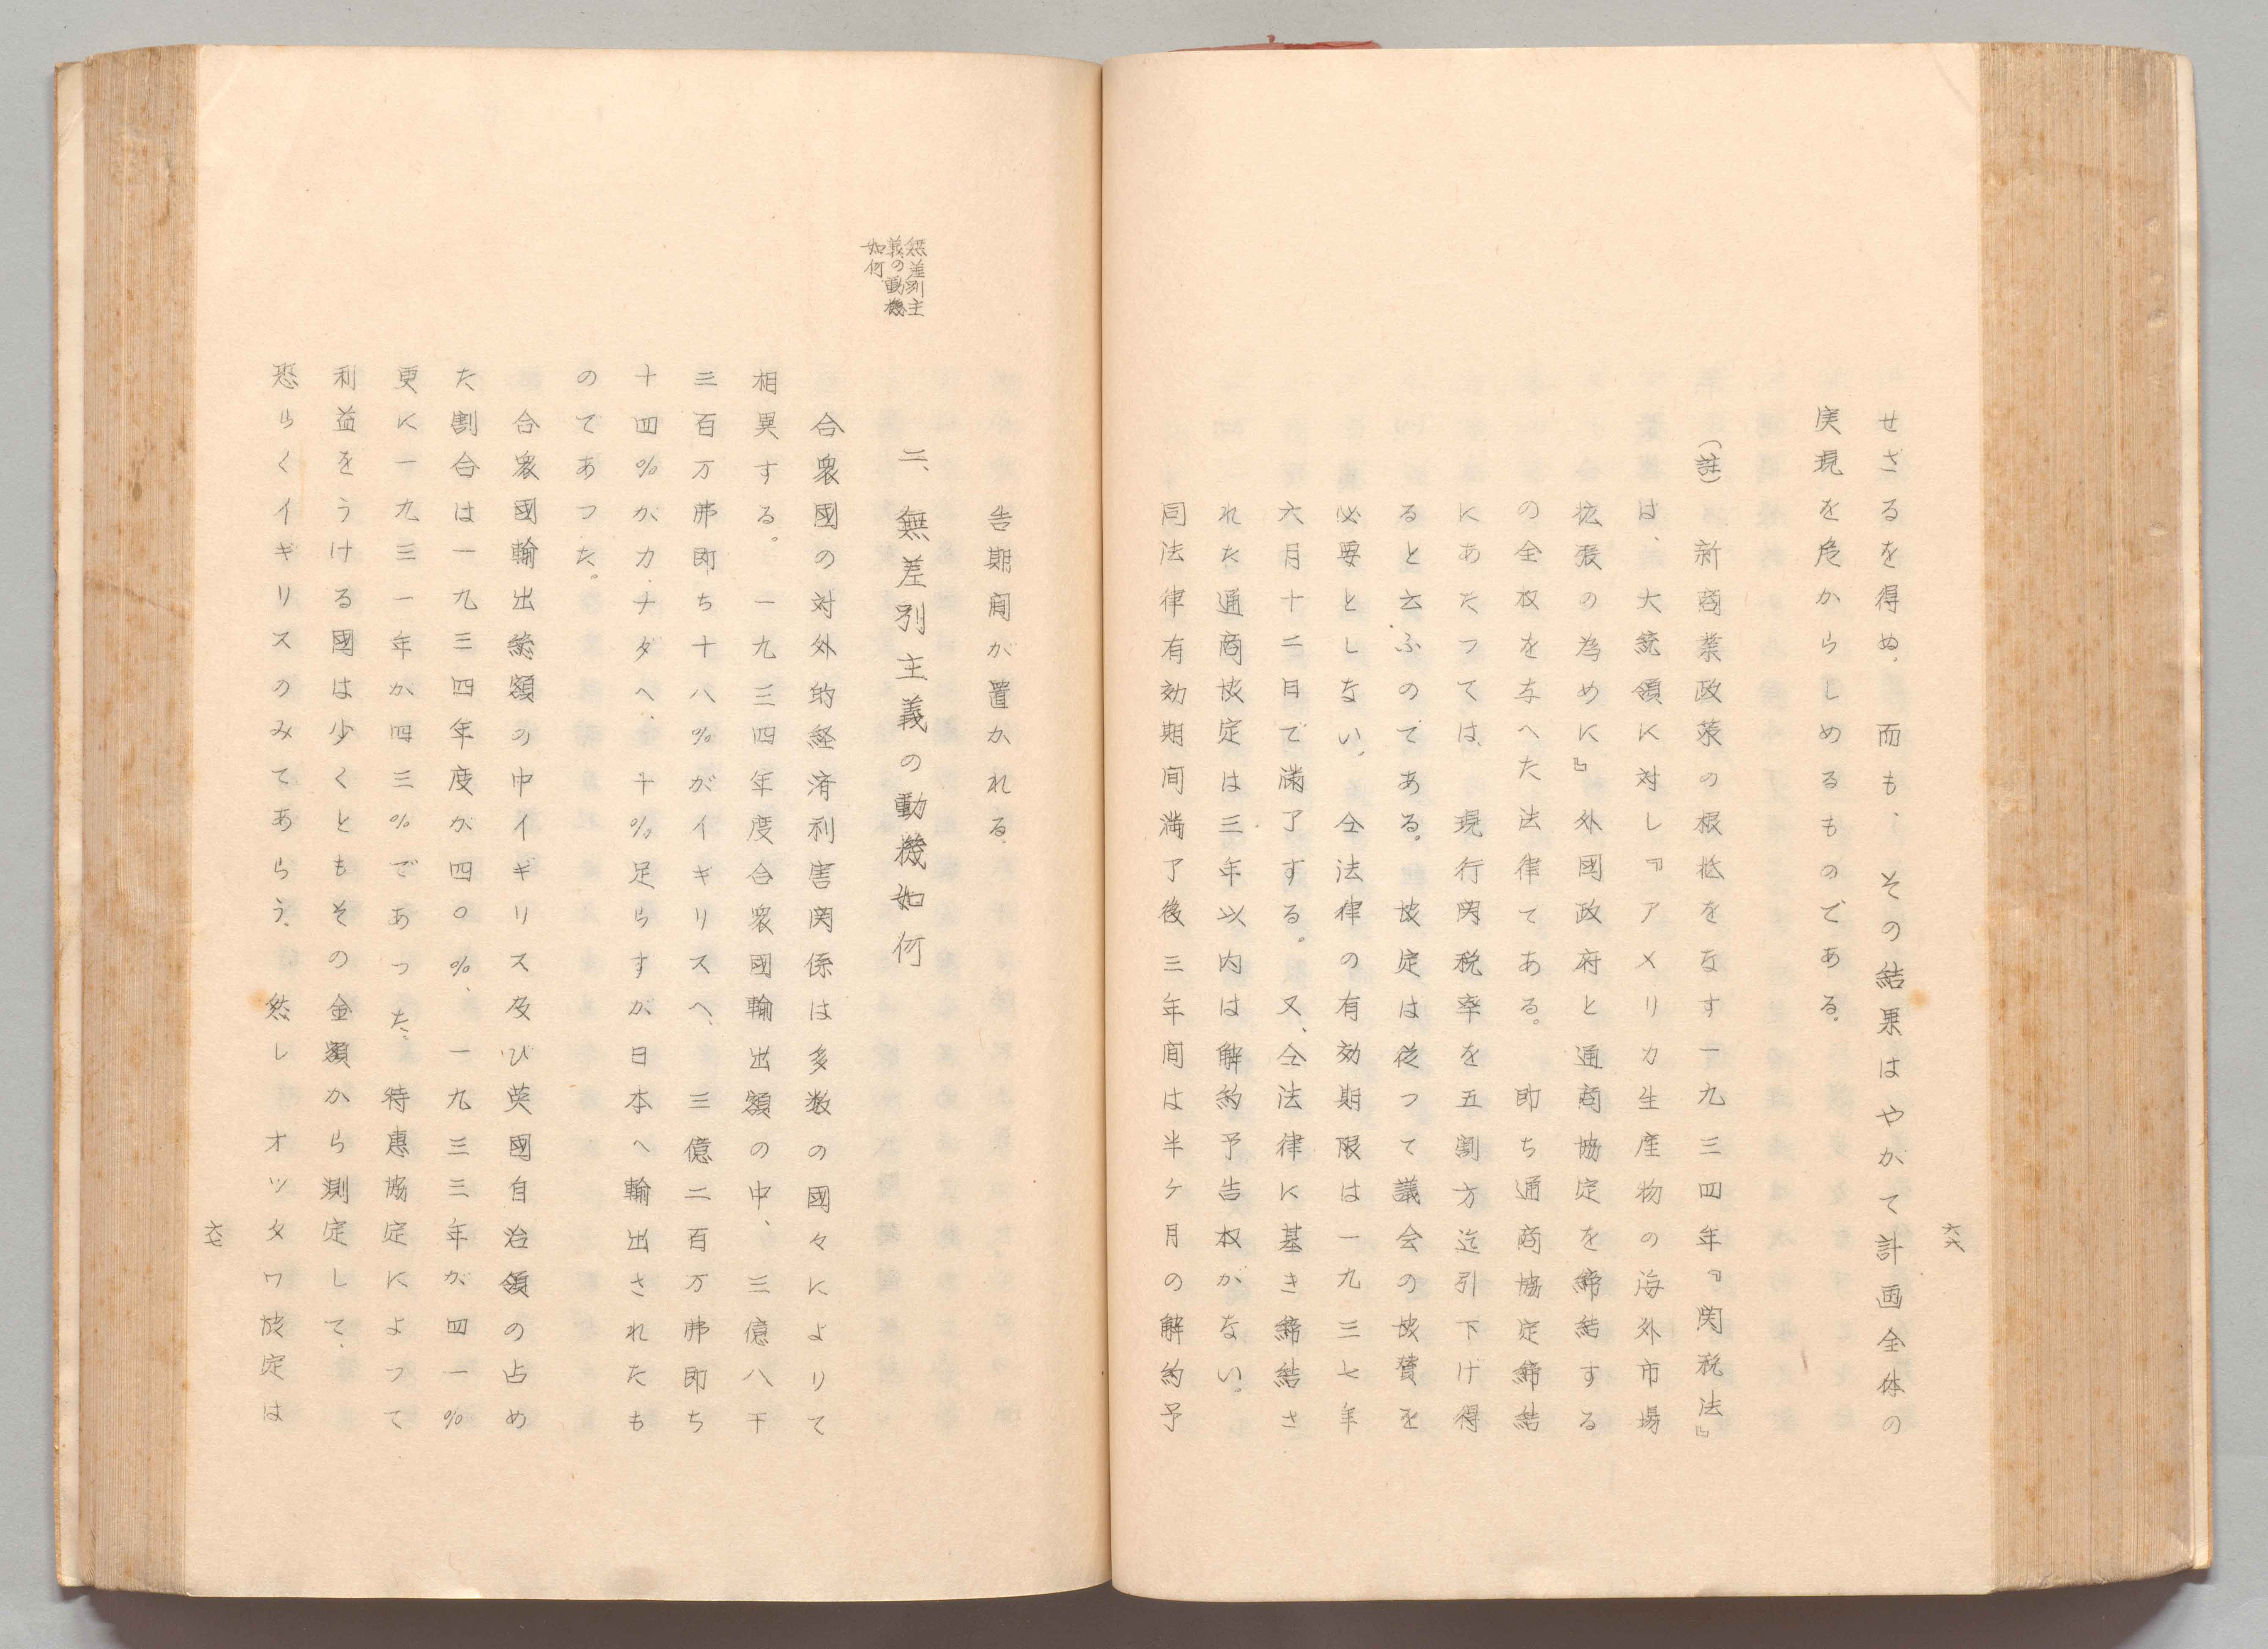 六六
せざるを得ぬ、而も、その結果はやがて計画全体の
実現を危からしめるものである。
(註)新商業政策の根柢をなす一九三四年『関税法』
は、大統領に対し『アメリカ生産物の海外市場
拡張の為めに』外國政府と通商協定を締結する
の全权を与へた法律てある。即ち通商協定締結
にあたつては、現行関税率を五割方迄引下げ得
ると云ふのてある。協定は従つて議会の協賛を
必要としない。仝法律の有効期限は一九三七年
六月十二日で滿了する。又、仝法律に基き締結さ
れた通商協定は三年以内は解約予告权がない。
同法律有効期间満了後三年间は半ヶ月の解約予
告期间が置かれる、
無差別主
義の動機
如何
二、無差別主義の動機如何
合衆國の対外的経済利害関係は多数の國々によりて
相異する。一九三四年度合衆國輸出額の中、三億八千
三百万弗即ち十八%がイギリスへ、三億二百万弗即ち
十四%がカナダへ、十%足らすが日本へ輸出されたも
のてあつた。
合衆國輸出総額の中イギリス及び英國自治領の占め
た割合は一九三四年度が四〇%、一九三三年が四一%
更に一九三一年が四三%であつた、特惠協定によつて
利益をうける國は少くともその金額から測定して、
恐らくイギリスのみてあらう、然しオツタワ協定は
六七